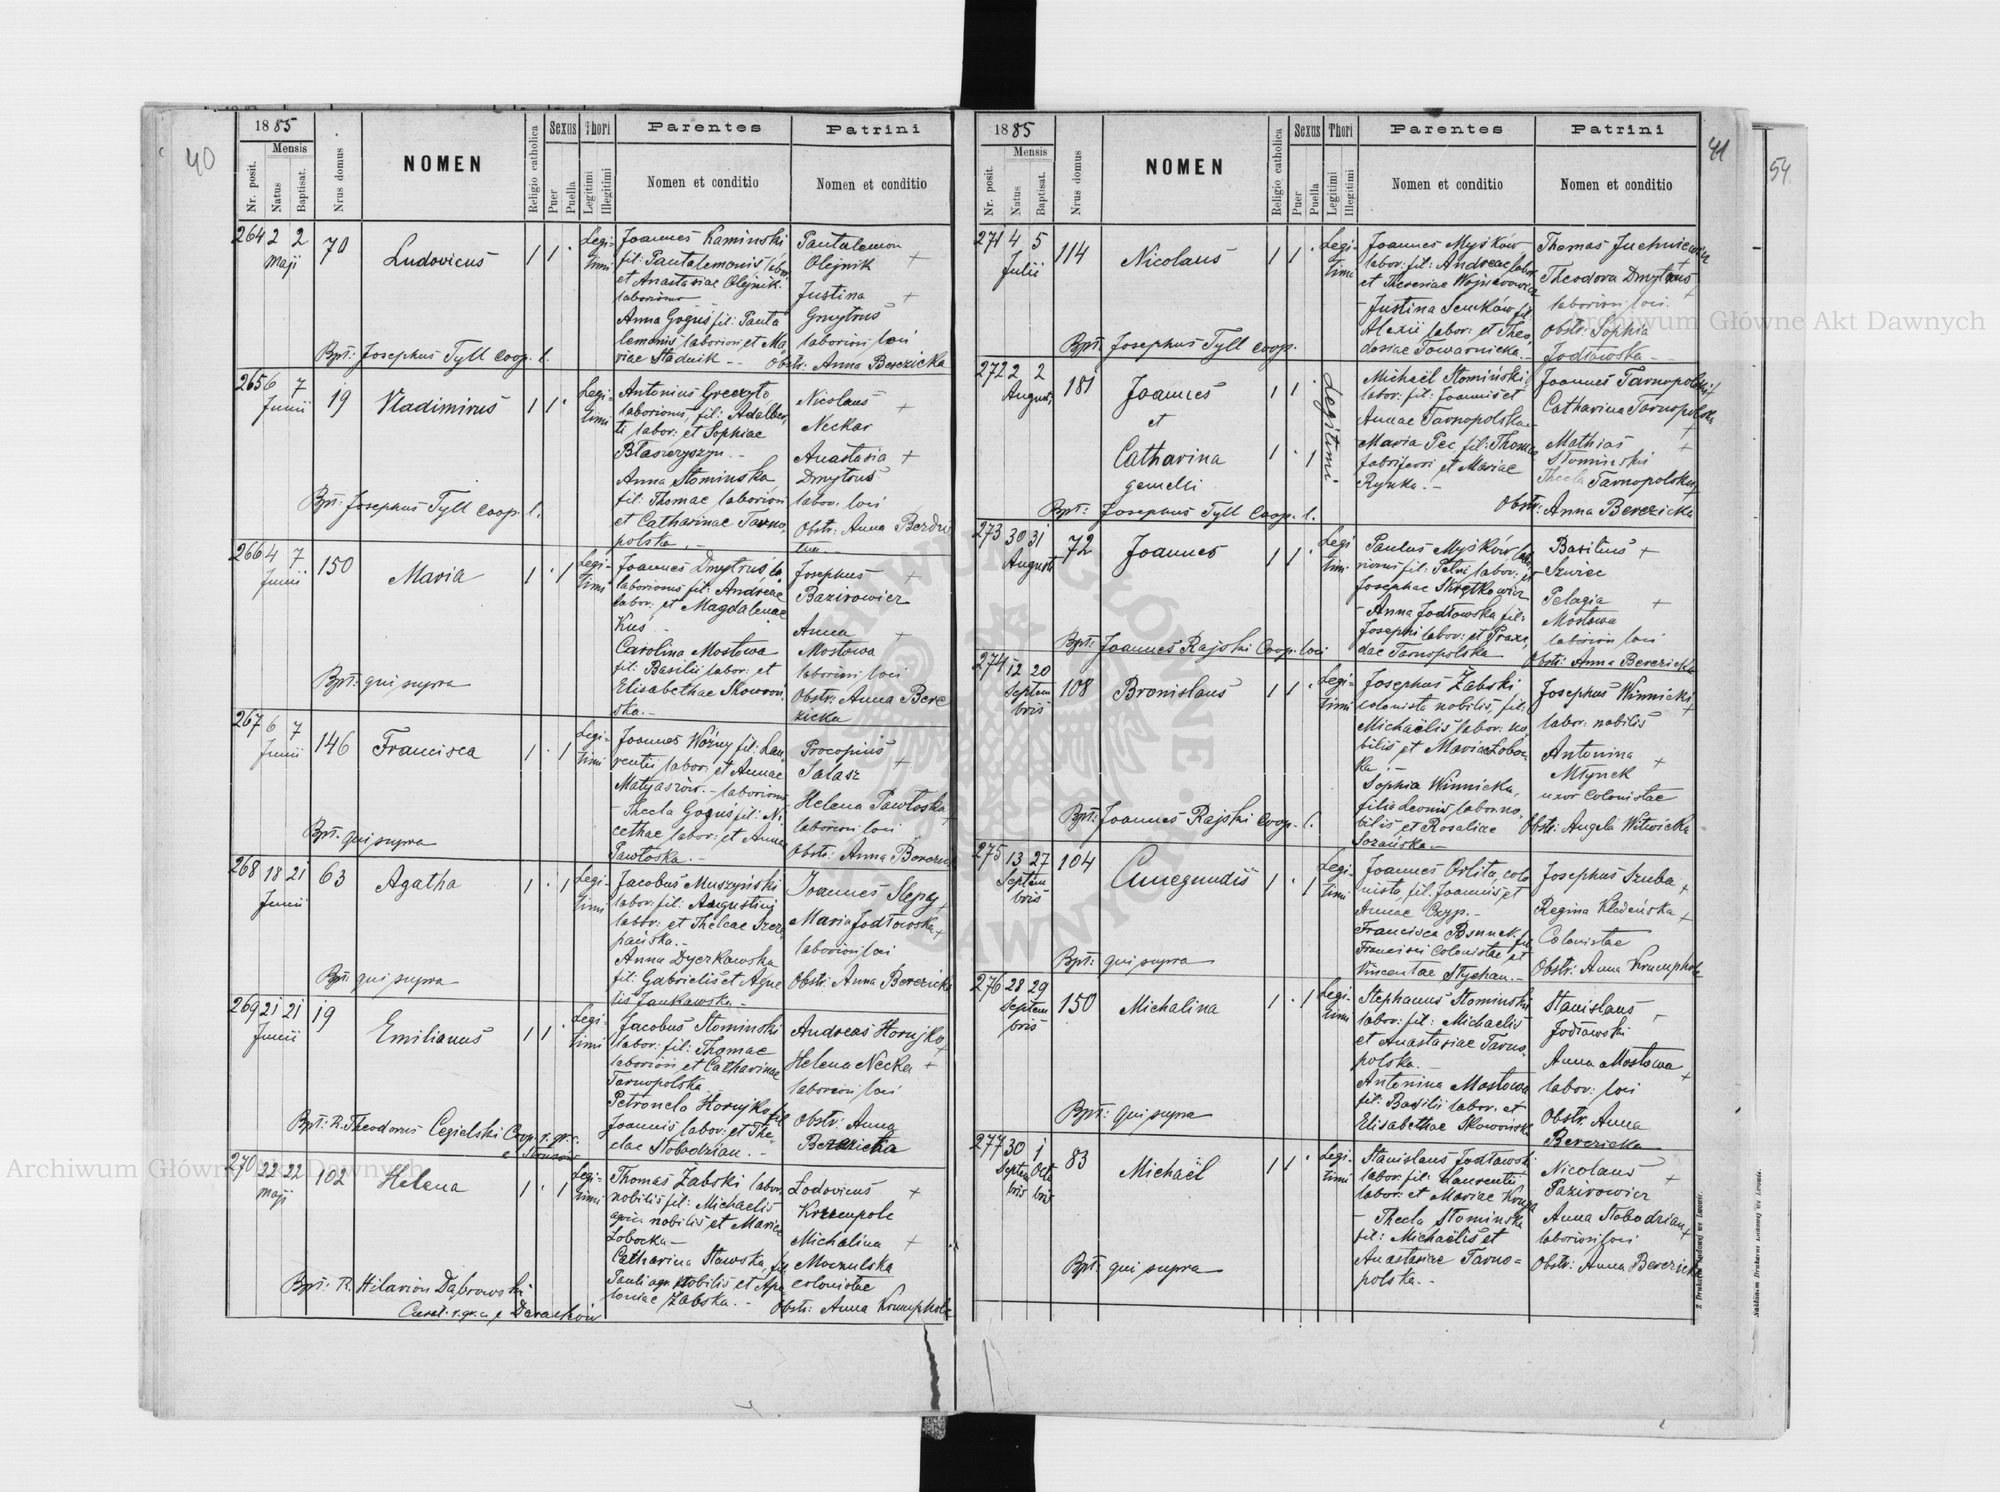 40
1885
Mensis
Nr. posit.
Natus
Baptisat.
Nrus domus
NOMEN
Religio catholica
Sexus
Puer
Puella
Thori
Legitimi
Illegitimi
Parentes
Nomen et conditio
Patrini
Nomen et conditio
264 2 2
Maji
70
Ludovicus
1 1 .
Legi-
timi
Joannes Kaminski
fil: Pantalemonis labor
et Anastasiae Olejnik
laborioso
Anna Goguś fil: Panta
lemonis laboriosi et Ma
riae Stadnik --
Pantalemon
Olejnik +
Justina +
Gmytruś
laboriosi loci
Obstr: Anna Berezicka
Bpt: Josephus Tyll Coop. l.
265 6 7
Junii
19
Vladimirus
1 1 .
Legi-
timi
Antonius Greczyło
laboriosus, fil: Adalber
ti labor: et Sophiae
Błaszczyszyn. -
Anna Słominska
fil: Thomae laboriosi
et Catharinae Tarno
polska. -
Nicolaus +
Neckar
Anastasia +
Dmytruś
labor. loci
Obstr: Anna
Bpt: Josephus Tyll Coop. l.
266 4 7
Junii
150
Maria
1 . 1
Legi-
timi
Joannes Dmytruś
laboriosus fil: Andreae
labor: et Magdalenae
Kuś -
Carolina Mostowa
fil: Basilii labor: et
Elisabethae Skowron
ska. -
Josephus +
Bazirowicz
Anna +
Mostowa
laboriosi loci
Obstr: Anna Bere
zicka
Bpt: qui supra
267 6 7
Junii
146
Francisca
1 . 1
Legi-
timi
Joannes Woźny fil: Lau
rentii labor: et Annae
Matyaszów. - laboriosus
- Thecla Goguś fil: Ni
cethae labor: et Anna
Pawłoska. -
Procopius +
Salasz
Helena Pawłoska +
laboriosi loci
Obstr: Anna Berezick
Bpt. qui supra
268 18 21
Junii
63
Agatha
1 . 1
Legi-
timi
Jacobus Muszyński
labor: fil: Augustinj
labor: et Theleae Szcze
pańska. -
Anna Dyczkowska
fil: Gabrielis et Agne
tis Jankowska. -
Joannes Slepey +
Maria Jodłowska +
laboriosi loci
Obstr: Anna Berezicka
Bpt: qui supra
269 21 21
Junii
19
Emilianus
1 1 .
Legi-
timi
Jacobus Słominski
labor: fil: Thomae
laboriosi et Catharinae
Tarnopolska
Petronela Hornjko fil
Joannis labor: et The
clae Słobodzian. -
Andreas Hornjko +
Helena Necka +
laboriosi loci
Obstr: Anna
Berezicka
Bpt: R. Theodorus Cegielski Coop. r. gr. c.
270 22 22
Maji
102
Helena
1 . 1
Legi-
timi
Thomas Żabski labor.
nobilis fil: Michaelis
agric. nobilis et Mariae
Łobocka -
Catharina Stawska, fil
Pauli agr. nobilis et Apo
loniae Żabska. -
Lodovicus +
Krzempole
Michalina +
Moczulska
colonistae
Obstr: Anna Krumphole
Bpt: R. Hilarion Dąbrowski
41
54
1885
Mensis
Nr. posit.
Natus
Baptisat.
Nrus domus
NOMEN
Religio catholica
Sexus
Puer
Puella
Thori
Legitimi
Illegitimi
Parentes
Nomen et conditio
Patrini
Nomen et conditio
271 4 5
Julii
114
Nicolaus
1 1 .
Legi-
timi
Joannes Myśków
labor: fil: Andreae labor
et Theresiae Wojnarowicz
- Justina Senków fil
Alexii labor: et Theo
dosiae Towarnicka. -
Thomas Juchniewicz +
Theodora Dmytruś +
laboriosi loci
Obstr: Sophia
Jodłowska -
Bpt: Josephus Tyll Coop.
272 2 2
Augusti
181
Joannes
et
Catharina
gemelli
1 1 .
1 . 1
Legitimi
Michaël Słomiński
labor: fil: Joannis et
Annae Tarnopolska -
Maria Pec fil: Thomae
fabriferri et Mariae
Rypka. -
Joannes Tarnopolski +
Catharina Tarnopolska +
Mathias +
Słominski
Thecla Tarnopolska +
Obstr: Anna Berezicka
Bpt: Josephus Tyll Coop. l.
273 30 31
Augusti
72
Joannes
1 1 .
Legi
timi
Paulus Myśków labo
riosus fil: Petri labor: et
Josephae Skrętkowicz
- Anna Jodłowska fil:
Josephi labor: et Praxe
dae Tarnopolska
Basilius +
Szwiec
Pelagia +
Mostowa
laboriosi loci
Obstr: Anna Berezicka
Bpt: Joannes Rajski Coop. loci
274 12 20
Septem
bris
108
Bronislaus
1 1 .
Legi-
timi
Josephus Żabski,
colonista nobilis, fil:
Michaëlis labor: no
bilis et Mariae Łoboc
ka. -
Sophia Winnicka,
filia Leonis labor. no,
bilis et Rosaliae
Sozańska -
Josephus Winnicki +
labor: nobilis
Antonina +
Młynek
uxor colonistae
Obstr: Angela Witwicka
Bpt: Joannes Rajski Coop. l.
275 13 27
Septem
bris
104
Cunegundis
1 . 1
Legi-
timi
Joannes Orlita, colo
nista, fil: Joannis, et
Annae Czyp. -
Francisca fil
Francisci Colonistae et
Vincentae Stychan. -
Josephus Szuba +
Regina Kladeńska +
Colonistae
Obstr: Anna Krumphole
Bpt: qui supra
276 28 29
Septem
bris
150
Michalina
1 . 1
Legi-
timi
Stephanus Słominski
labor: fil: Michaelis
et Anastasiae Tarno
polska. -
Antonina Mostowa
fil: Basilii labor: et
Elisabethae Skowrońska
Stanislaus +
Jodłowski
Anna Mostowa +
labor: loci
Obstr: Anna
Berezicka
Bpt: qui supra
277 30 1
Septem Octo
bris bris
83
Michaël
1 1 .
Legi-
timi
Stanislaus Jodłowski
labor: fil: Laurentii
labor: et Mariae
- Thecla Słominska
fil: Michaëlis et
Anastasiae Tarno=
polska. -
Nicolaus +
Pazirowicz
Anna Słobodzian +
laboriosi loci
Obstr: Anna Berezicka
Bpt: qui supra
Z Drukarni Ludowej we Lwowie.
Nakładem Drukarni Ludowej we Lwowie.
Archiwum Główne Akt Dawnych
Archiwum Główne Akt Dawnych